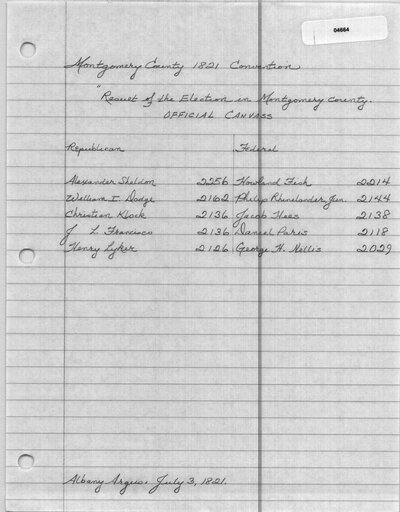 04664
Montgomery County 1821 Convention
"Result of the Election in Montgomery County.
OFFICIAL CANVASS
Republican Federal
Alexander Sheldon 2256 Howland Fish 2214
William I. Dodge 2162 Philip Rhinelander Jun. 2144
Christian Klock 2136 Jacob Hees 2138
J L Francisco 2136 Daniel Paris 2118
Henry Lyker 2126 George H. Nellis 2029
Albany Argus. July 3, 1821.